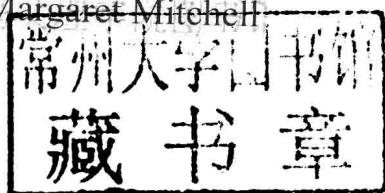 Margaret Mitchell
常州大学图书馆
藏书章